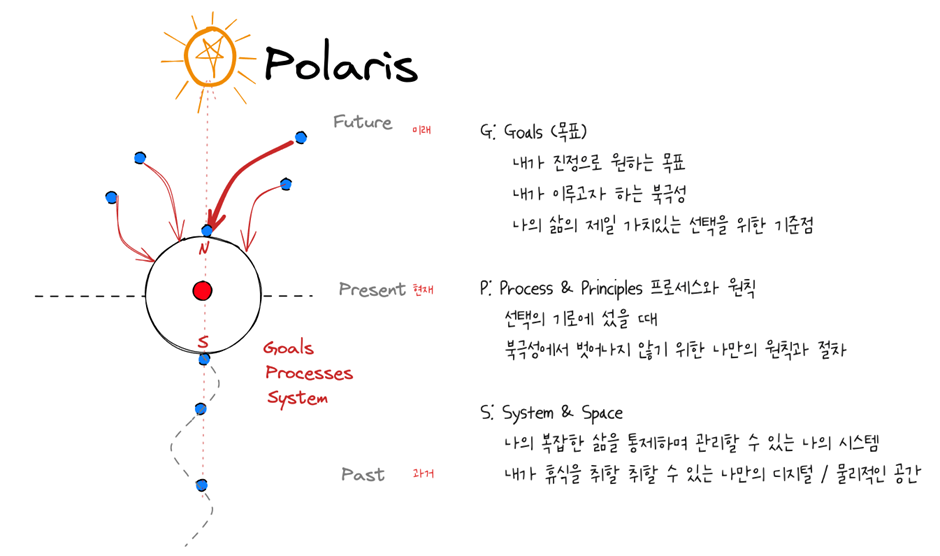 Polaris
Future 미래
N
Present 현재
S
Goals
Processes
System
Past 과거
G: Goals (목표)
내가 진정으로 원하는 목표
내가 이루고자 하는 북극성
나의 삶의 제일 가치있는 선택을 위한 기준점
P: Process & Principles 프로세스와 원칙
선택의 기로에 섰을 때
북극성에서 벗어나지 않기 위한 나만의 원칙과 절차
S: System & Space
나의 복잡한 삶을 통제하며 관리할 수 있는 나의 시스템
내가 휴식을 취할 취할 수 있는 나만의 디지털 / 물리적인 공간